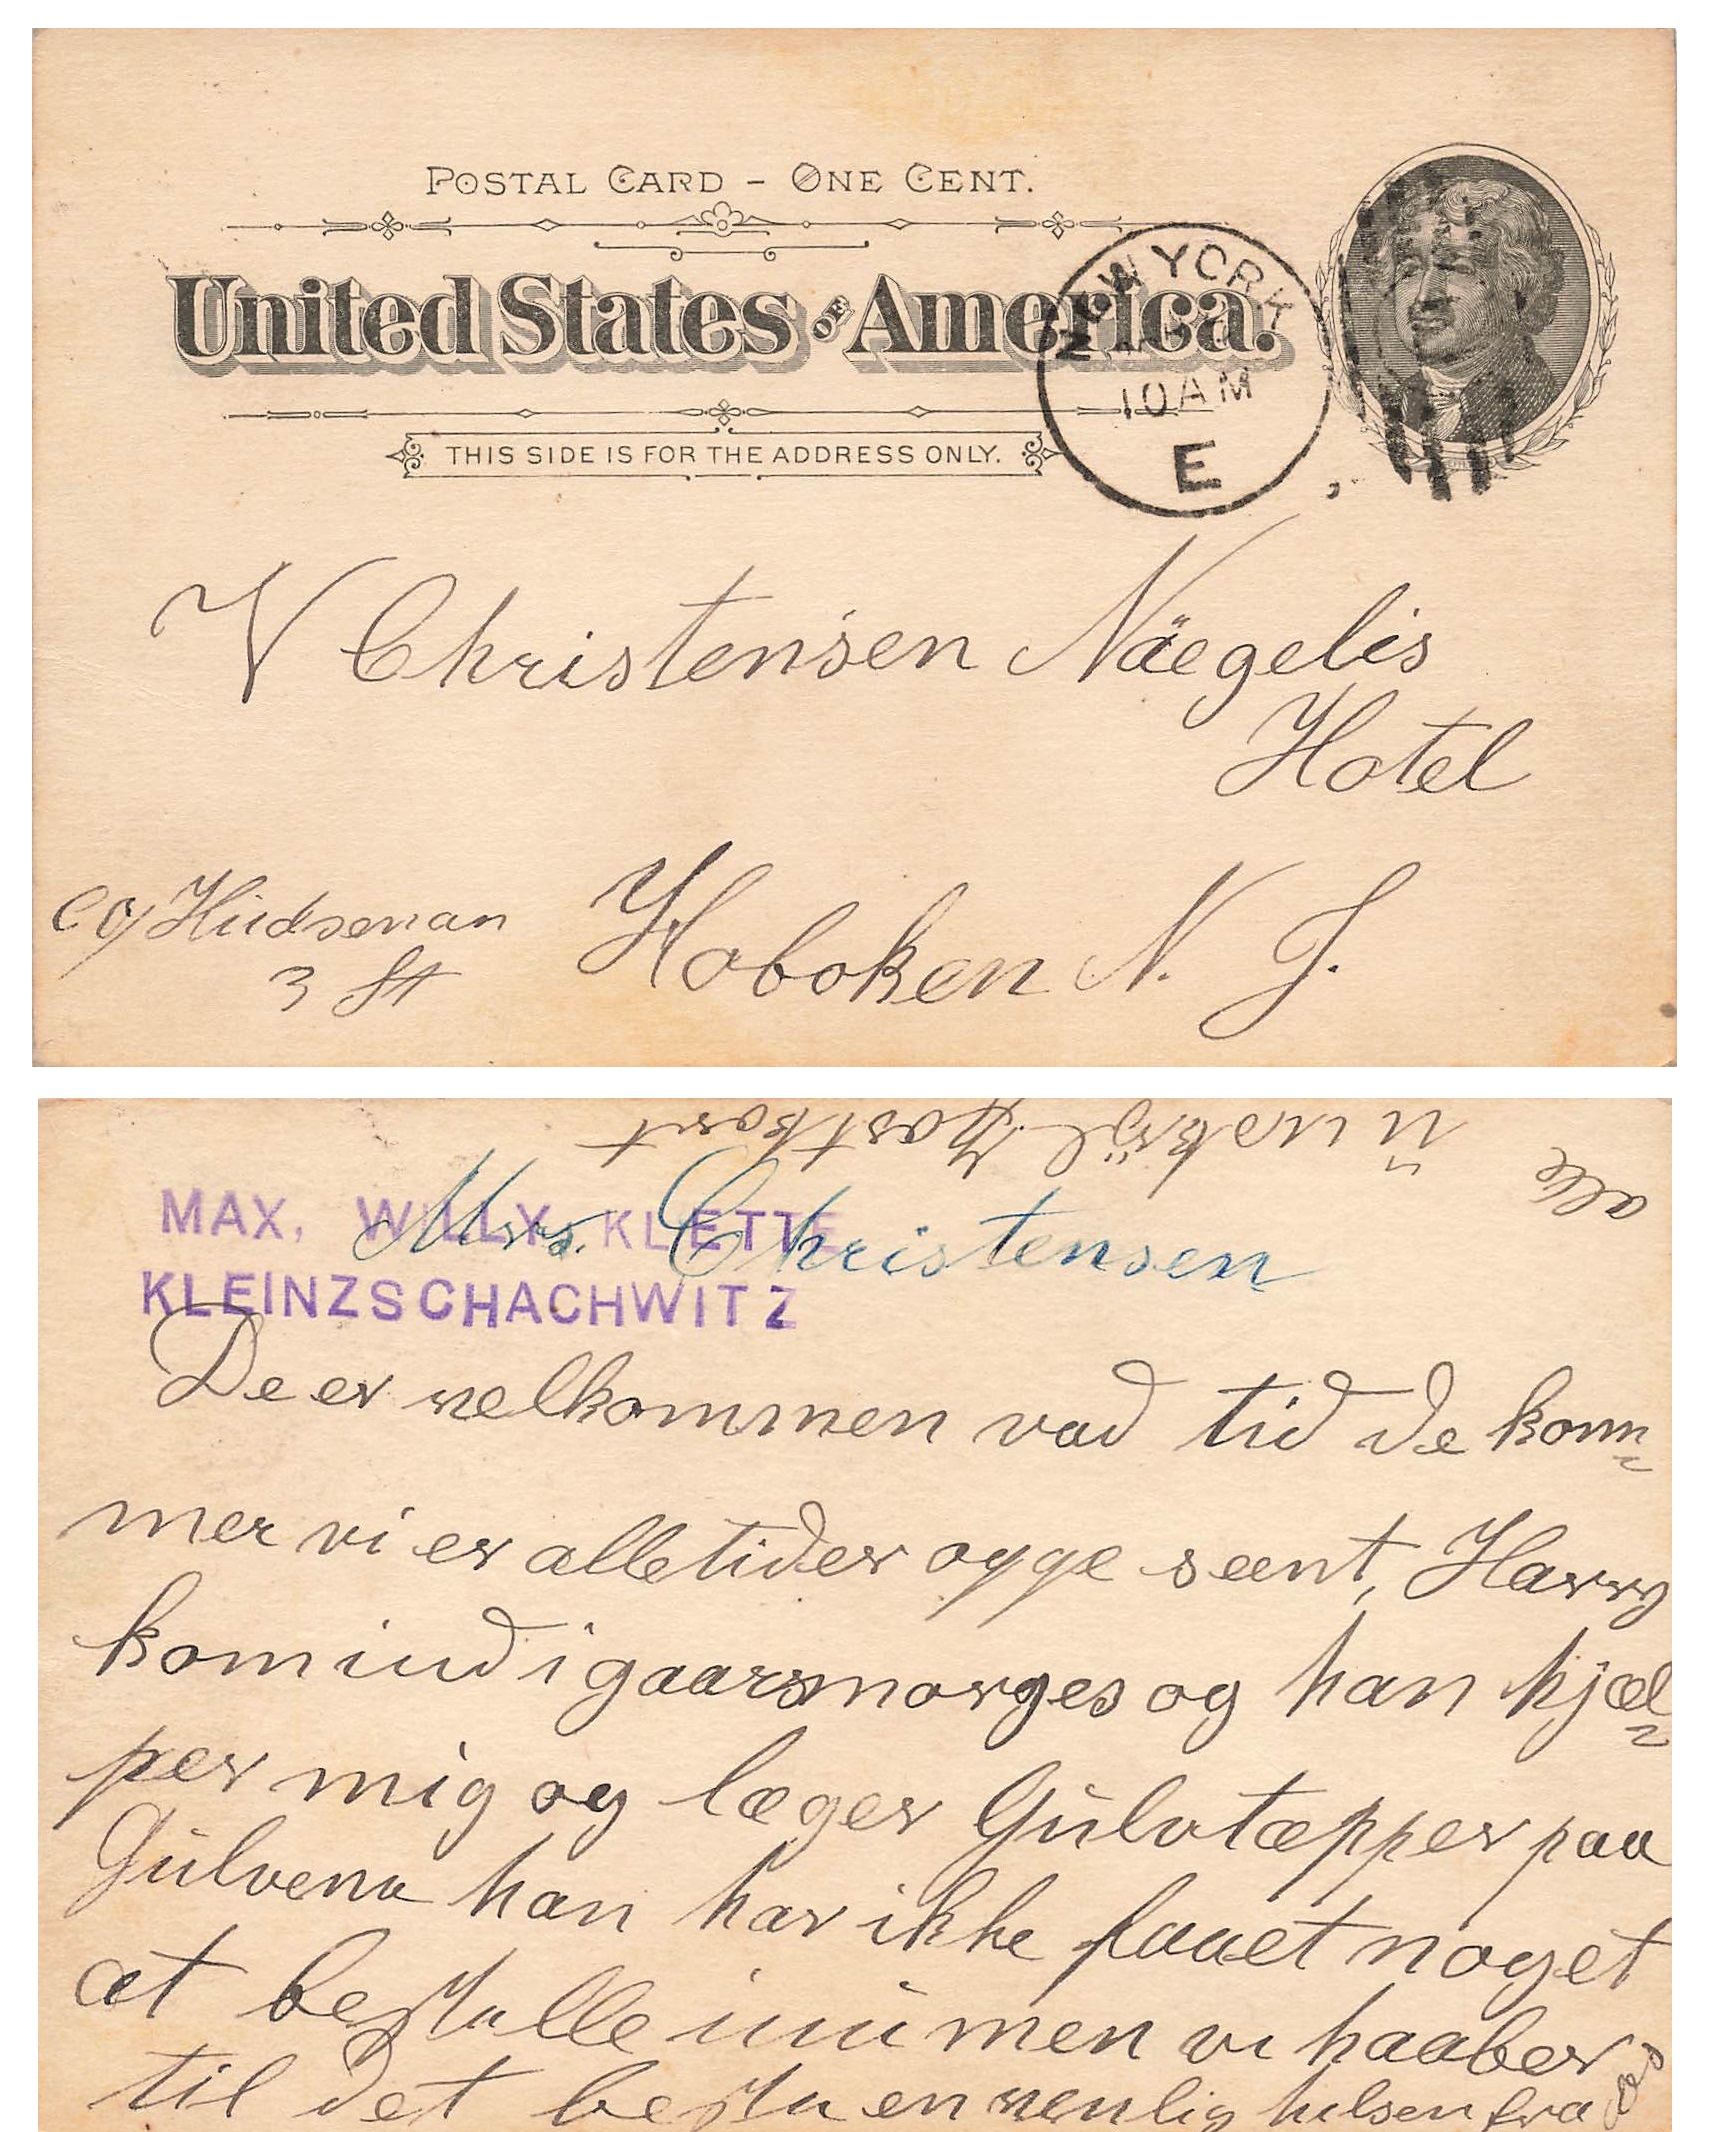 POSTAL CARD - ONE CENT.
United States OF America.
NEW YORK
10 AM
E
THIS SIDE IS FOR THE ADDRESS ONLY.
V Christensen Näegelis
Hotel
Hoboken N. J.
3 St
alle
Postkort
MAX. WILLY KLETTE
KLEINZSCHACHWITZ
Mrs. Christensen
De er velkommen vad tid de kom-
mer vi er alletider oppe seent, Harry
kom ind i gaarsmorges og han hjæl-
per mig og læger Gulvtæpper paa
Gulvena han har ikke faaet noget
at bestille inu men vi haaber
til det besta en venlig hilsen fra os